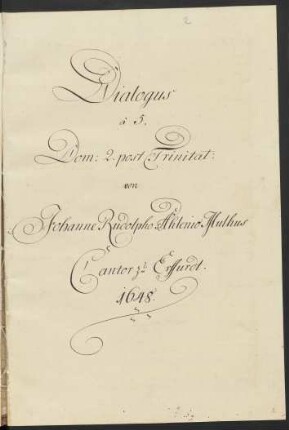 Dialogus
à 5.
Dom: 2. post Trinitat:
von
Johanne Rudolpho
Cantor zu Erffurdt.
1648